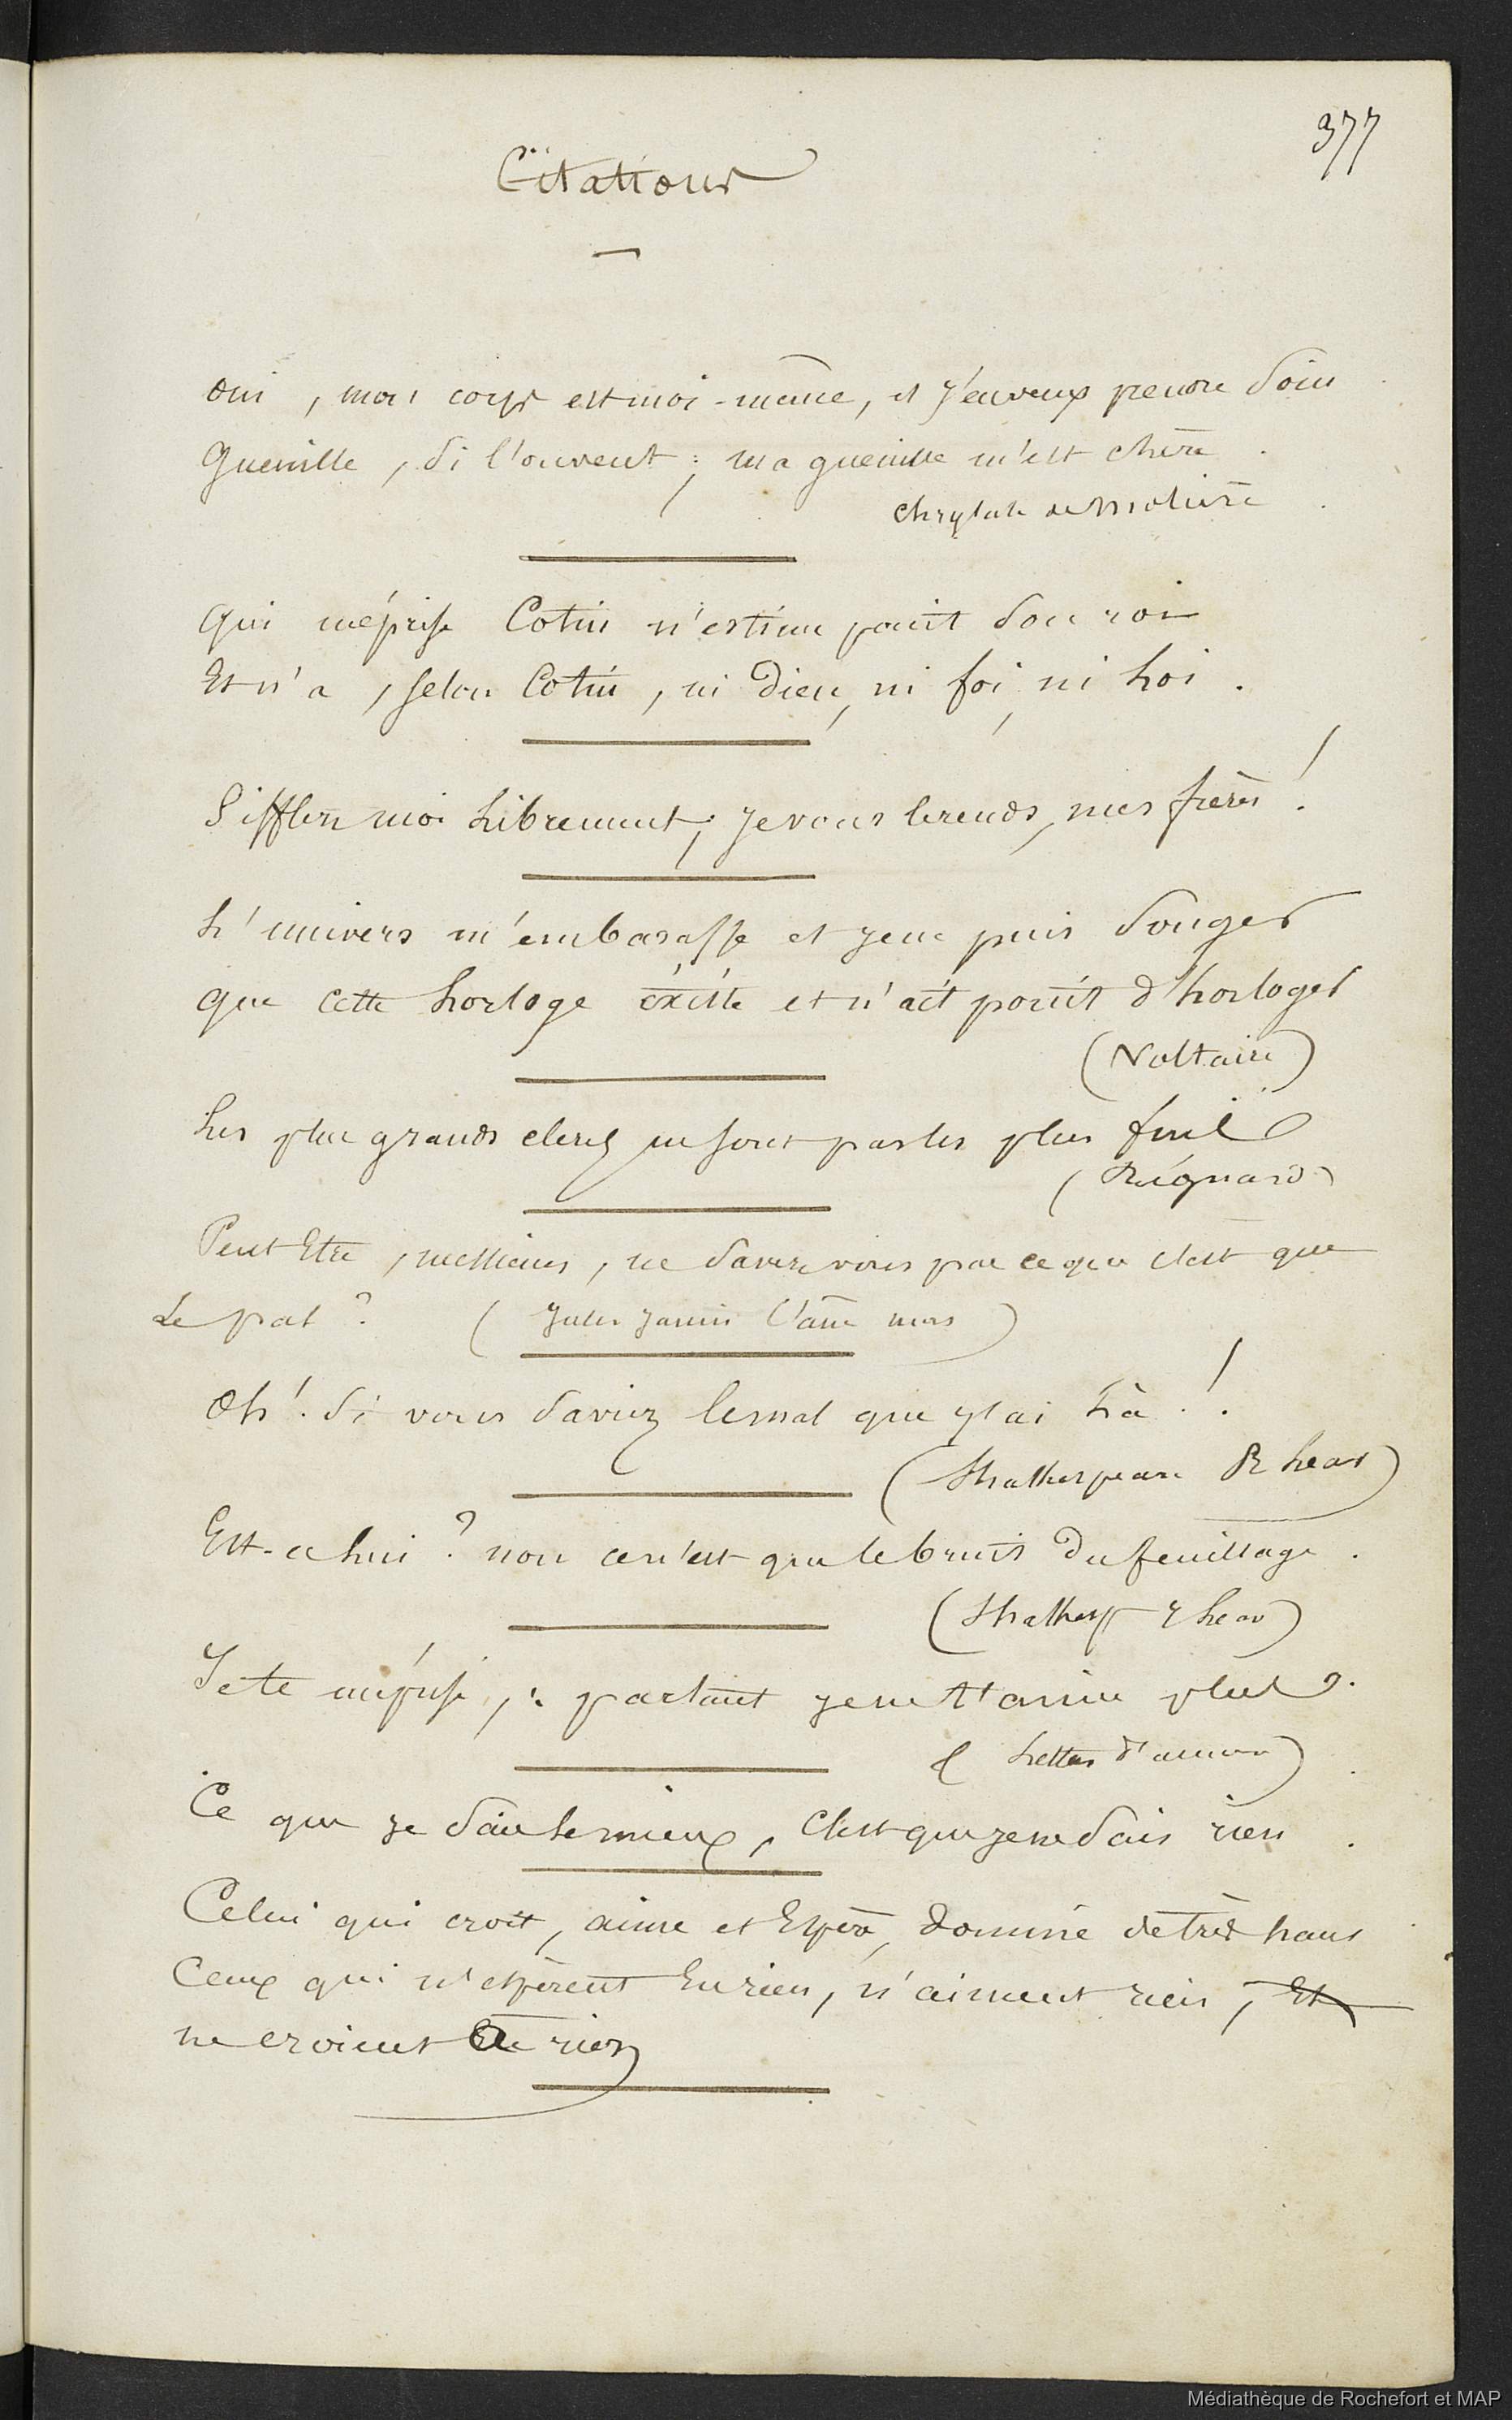 377
Citations
Oui, mon corps est moi-même, et j'en veux prendre soin
Guenille, si l'on veut; ma guenille m'est chère.
Chrysale de Molière.
Qui méprise Cotin n'estime point son roi
Et n'a, selon Cotin, ni Dieu, ni foi, ni Loi.
Sifflez moi Librement; je vous le rends, mes frères!
L'univers m'embarasse et je ne puis songer
que cette horloge éxiste et n'ait point d'horloger
(Voltaire)
Les plus grands clercs ne sont pas les plus fins
(Régnard)
Peut Etre, messieurs, ne savez vous pas ce que c'est que
Le pal? (Jules Janin L'âne mort)
Oh! si vous saviez le mal que j'ai Là!
(Shakespeare R Lear)
Est-ce Lui? non ce n'est que le bruit du feuillage.
(Shakesp R Lear)
Je te méprise; partant je ne t'aime plus.
(Lettres d'amour)
Ce que je sais le mieux, c'est que je ne sais rien.
Celui qui croit, aime et Espère, domine de très haut
Ceux qui n'espèrent En rien, n'aiment rien, Et
ne croient à rien
Médiathèque de Rochefort et MAP